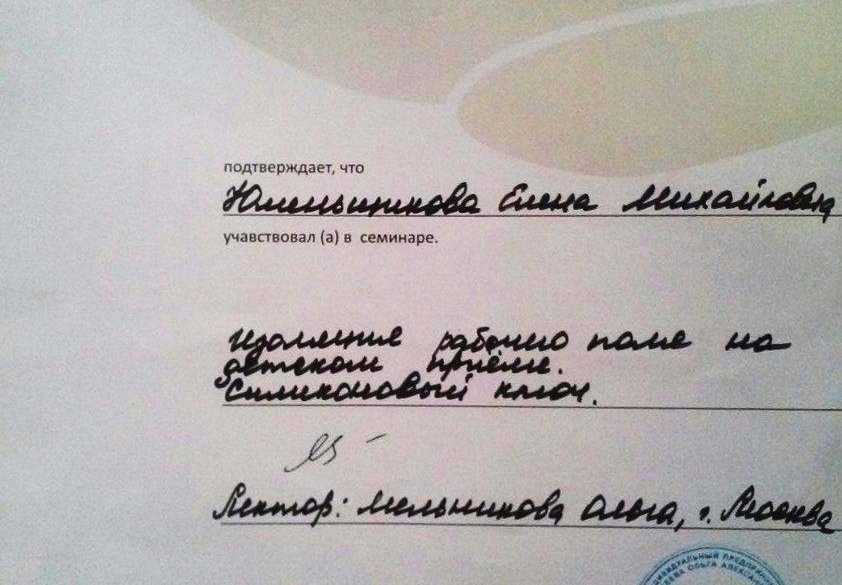 подтверждает, что
Елена Михайловна
учавствовал (а) в семинаре.
Изоляция рабочего поля на
детском приёме.
Силиконовый ключ.
Лектор: Мельникова Ольга, г. Москва
ОЛЬГА